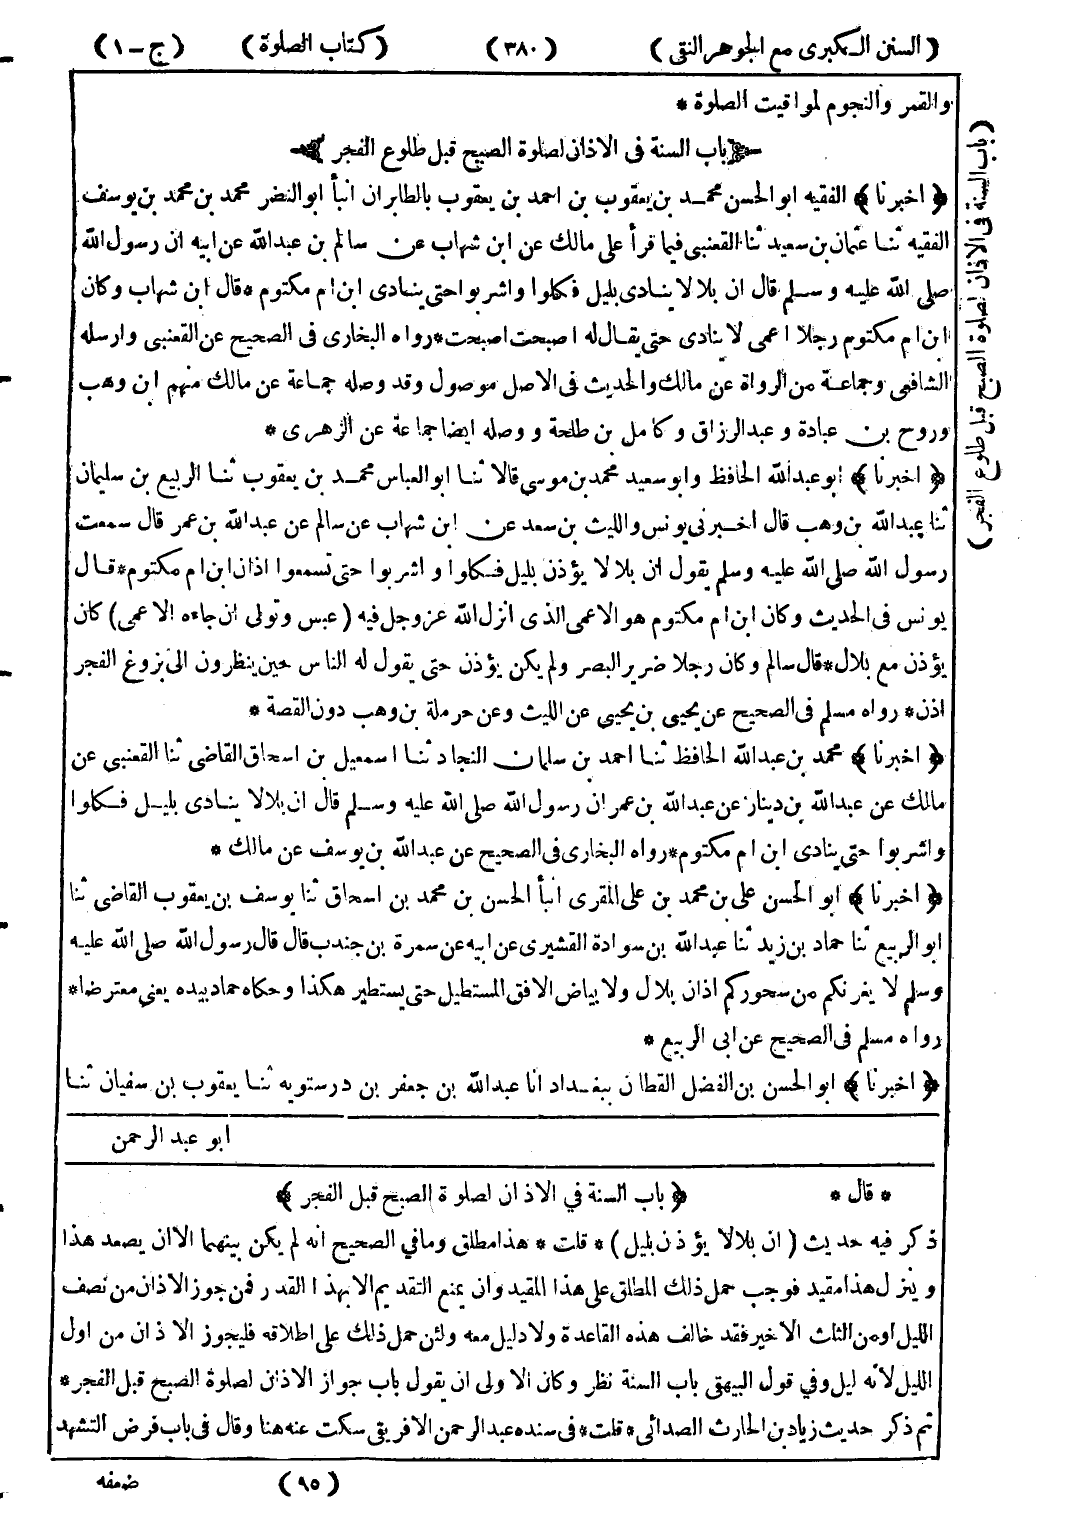 ( السنن الكبرى مع الجوهر النقى ) ( ٣٨٠ ) ( كتاب الصلوة ) ( ج - ١ )
والقمر والنجوم لمواقيت الصلوة *
﴿ باب السنة فى الاذان لصلوة الصبح قبل طلوع الفجر ﴾
( باب السنة فى الاذان لصلوة الصبح قبل طلوع الفجر )
﴿ اخبرنا ﴾ الفقيه ابو الحسن محمد بن يعقوب بن احمد بن يعقوب بالطابران انبأ ابو النضر محمد بن محمد بن يوسف
الفقيه ثنا عثمان بن سعيد ثنا القعنبى فيما قرأ على مالك عن ابن شهاب عن سالم بن عبدالله عن ابيه ان رسول الله
صلى الله عليه وسلم قال ان بلالا ينادى بليل فكلوا واشربوا حتى ينادى ابن ام مكتوم * قال ابن شهاب وكان
ابن ام مكتوم رجلا اعمى لا ينادى حتى يقال له اصبحت اصبحت * رواه البخارى فى الصحيح عن القعنبى وارسله
الشافعى وجماعة من الرواة عن مالك والحديث فى الاصل موصول وقد وصله جماعة عن مالك منهم ابن وهب
وروح بن عبادة وعبدالرزاق وكامل بن طلحة ووصله ايضا جماعة عن الزهرى *
﴿ اخبرنا ﴾ ابو عبدالله الحافظ وابو سعيد محمد بن موسى قالا ثنا ابو العباس محمد بن يعقوب ثنا الربيع بن سليمان
ثنا عبدالله بن وهب قال اخبرنى يونس والليث بن سعد عن ابن شهاب عن سالم عن عبدالله بن عمر قال سمعت
رسول الله صلى الله عليه وسلم يقول ان بلالا يؤذن بليل فكلوا واشربوا حتى تسمعوا اذان ابن ام مكتوم * قال
يونس فى الحديث وكان ابن ام مكتوم هو الاعمى الذى انزل الله عزوجل فيه ( عبس وتولى ان جاءه الاعمى ) كان
يؤذن مع بلال * قال سالم وكان رجلا ضرير البصر ولم يكن يؤذن حتى يقول له الناس حين ينظرون الى بزوغ الفجر
اذن * رواه مسلم فى الصحيح عن يحيى بن يحيى عن الليث وعن حرملة بن وهب دون القصة *
﴿ اخبرنا ﴾ محمد بن عبدالله الحافظ ثنا احمد بن سلمان النجاد ثنا اسمعيل بن اسحاق القاضى ثنا القعنبى عن
مالك عن عبدالله بن دينار عن عبدالله بن عمر ان رسول الله صلى الله عليه وسلم قال ان بلالا ينادى بليل فكلوا
واشربوا حتى ينادى ابن ام مكتوم * رواه البخارى فى الصحيح عن عبدالله بن يوسف عن مالك *
﴿ اخبرنا ﴾ ابو الحسن على بن محمد بن على المقرى انبأ الحسن بن محمد بن اسحاق ثنا يوسف بن يعقوب القاضى ثنا
ابو الربيع ثنا حماد بن زيد ثنا عبدالله بن سوادة القشيرى عن ابيه عن سمرة بن جندب قال قال رسول الله صلى الله عليه
وسلم لا يغرنكم من سحوركم اذان بلال ولا بياض الافق المستطيل حتى يستطير هكذا وحكاه حماد بيده يعنى معترضا *
رواه مسلم فى الصحيح عن ابى الربيع *
﴿ اخبرنا ﴾ ابو الحسن بن الفضل القطان ببغداد انا عبدالله بن جعفر بن درستويه ثنا يعقوب بن سفيان ثنا
ابو عبد الرحمن
* قال * ﴿ باب السنة في الاذان لصلوة الصبح قبل الفجر ﴾
ذكر فيه حديث ( ان بلالا يؤذن بليل ) * قلت * هذا مطلق وما في الصحيح انه لم يكن بينهما الا ان يصعد هذا
وينزل هذا مقيد فوجب حمل ذلك المطلق على هذا المقيد وان يمنع التقديم الا بهذا القدر فمن جوز الاذان من نصف
الليل او من الثلث الاخير فقد خالف هذه القاعدة ولا دليل معه ولئن حمل ذلك على اطلاقه فليجوز الاذان من اول
الليل لأنه ليل وفي قول البيهقى باب السنة نظر وكان الاولى ان يقول باب جواز الاذان لصلوة الصبح قبل الفجر *
ثم ذكر حديث زياد بن الحارث الصدائى * قلت * فى سنده عبدالرحمن الافريقى سكت عنه هنا وقال فى باب فرض التشهد
( ٩٥ ) ضعفه